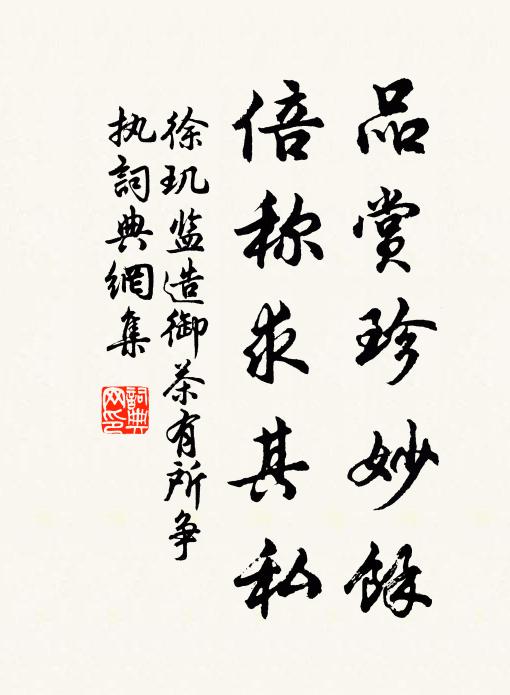 品赏珍妙餘
倍称求其私
徐玑监造御茶有所争
执詞典網集
詞典
网印